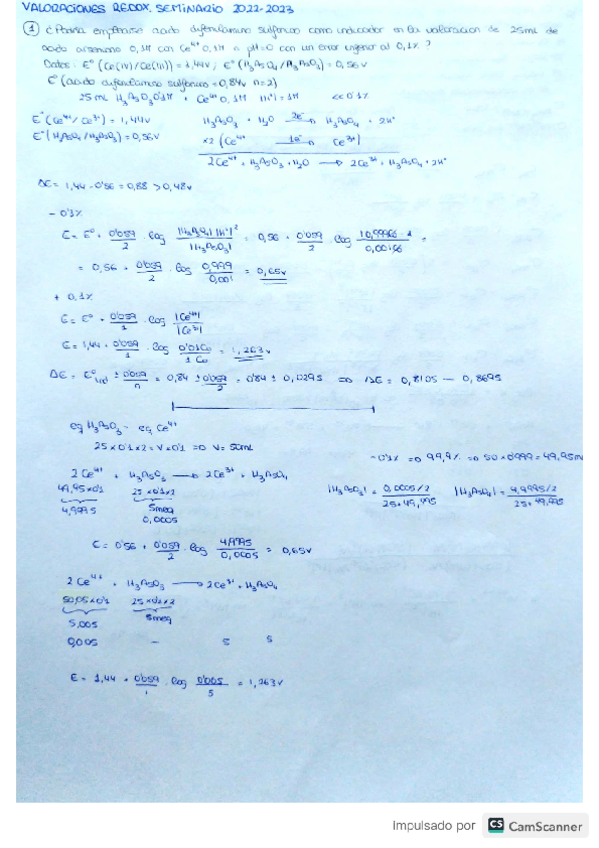 VALORACIONES REDOX. SEMINARIO 2022-2023
① ¿Podría emplearse ácido difenilamino sulfónico como indicador en la valoración de 25mL de
ácido arsenioso 0,1M con Ce⁴⁺ 0,1M a pH=0 con un error inferior al 0,1%?
Datos: E°(Ce(IV)/Ce(III)) = 1,44V; E°(H₃AsO₄/H₃AsO₃) = 0,56V
E°(ácido difenilamino sulfónico = 0,84V n=2)
25 mL H₃AsO₃ 0'1M + Ce⁴⁺ 0,1M |H⁺| = 1M << 0'1%
E°(Ce⁴⁺/Ce³⁺) = 1,44V H₃AsO₃ + H₂O 2e⁻ → H₃AsO₄ + 2H⁺
E°(H₃AsO₄/H₃AsO₃) = 0,56V x2 (Ce⁴⁺ 1e⁻ → Ce³⁺)
2Ce⁴⁺ + H₃AsO₃ + H₂O → 2Ce³⁺ + H₃AsO₄ + 2H⁺
ΔE = 1,44 - 0'56 = 0,88 > 0,48V
- 0'1%
E = E° + 0'059/2 log |H₃AsO₄| |H⁺|²/|H₃AsO₃| = 0,56 + 0'059/2 log
= 0,56 + 0'059/2 log 0,999/0,001 = 0,65V
+ 0,1%
E = E° + 0'059/1 log |Ce⁴⁺|/|Ce³⁺|
E = 1,44 + 0'059/1 log = 1,263V
ΔE = E°ind ± 0'059/n = 0,84 ± 0'059/2 = 0'84 ± 0,0295 => ΔE = 0,8105 - 0,8695
eq H₃AsO₃ = eq Ce⁴⁺
25 x 0'1 x 2 = V x 0'1 => V = 50mL
- 0'1% => 99,9% => 50 x 0'999 = 49,95m
2Ce⁴⁺ + H₃AsO₃ → 2Ce³⁺ + H₃AsO₄
49,95 x 0'1 25 x 0'1 x 2
|H₃AsO₃| = 0,0005/2 / |H₃AsO₄| = 4,9995/2 /
4,9995 5meq
0,0005
E = 0'56 + 0'059/2 log 4,9995/0,0005 = 0,65V
2Ce⁴⁺ + H₃AsO₃ → 2Ce³⁺ + H₃AsO₄
50,05 x 0'1
5,005 5meq
0,005 - 5 5
E = 1,44 + 0'059/1 log 0'005/5 = 1,263V
Impulsado por CS CamScanner